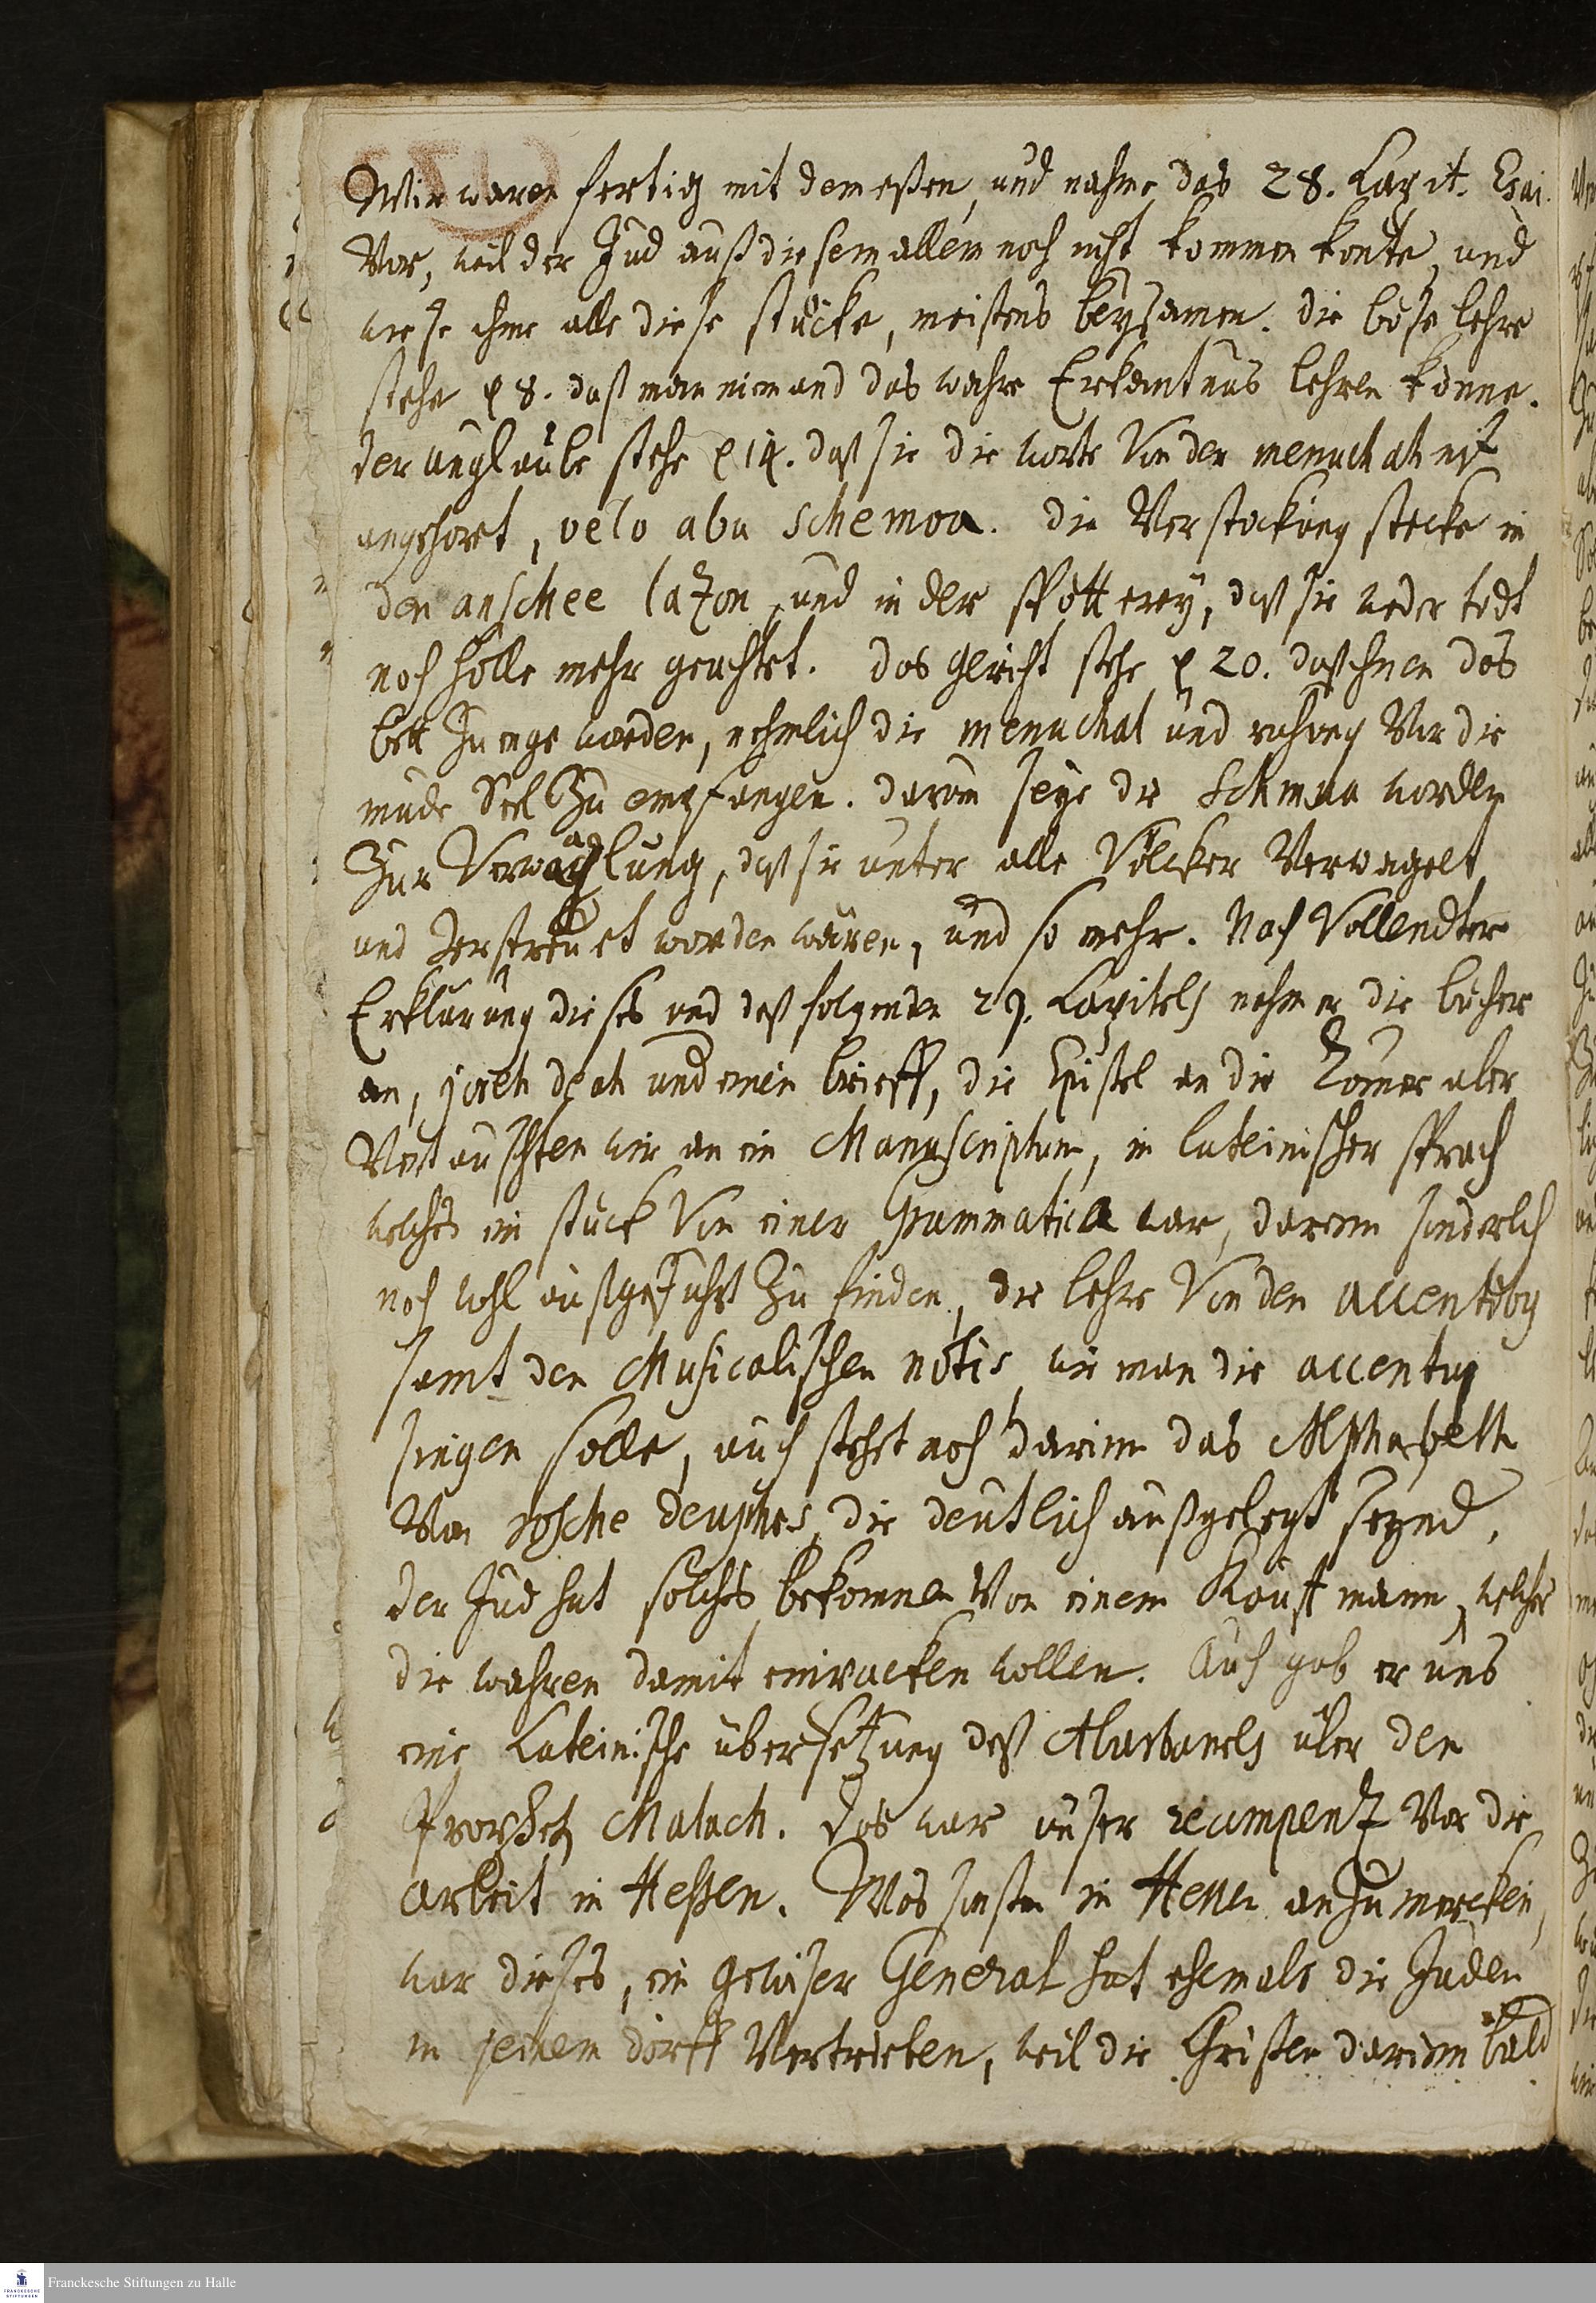 Wir waren fertig mit dem eßen, und nahme das 28. Capit. Esai.
Vor, weil der Jud auß diesem allein noch nicht kommen konte, und
wiese ihme alle diese stücke, meistens beysamen. die böse lehre
stehe v 8. daß man niemand das wahre Erkantnus lehren könne.
der unglaube stehe v 14. daß sie die worte Von der menuchah nicht
angehöret, velo abu schemoa. die Verstockung stecke in
den anschee lazon, und in der spötterey, daß sie weder todt
noch hölle mehr geachtet. das gericht stehe v 20. daß ihnen das
bett zu enge worden, nehmlich die menuchat und ruhung Vor die
müde Seel zu empfangen. darum seye die Schmua worden
Zur Verwaglung, daß sie unter alle Völcker Verwagelt
und zerstreuet worden wären, und so mehr. Nach Vollendter
Erklärung dieses und deß folgenden 29. Capitels nahm er die bücher
an, joreh deah und einen brieff, die Epistel an die Römer aber
Vertauschten wir an ein Manuscriptum, in lateinischer sprach
welches ein stück Von einer Grammatica war, darinn sonderlich
noch wohl außgeführt zu finden, die lehre Von den accentibus
samt den Musicalischen notis, wie man die accentus
singen solle, auch stehet noch darinn das Alphabeth
Von rosche deuphes, die deutlich außgelegt seynd.
der Jud hat solches bekommen Von einem Kauffmann, welcher
die wahren damit einpacken wollen. Auch gab er uns
eine Lateinische übersetzung deß Abarbanels über den
Propheten Malach. das war unser recompenz Vor die
arbeit in Heßen. Was sonsten in Heßen anzumercken,
war dieses, ein gewiser General hat ehemals die Juden
in seinem dorff Vertrieben, weil die Christen darinn bald
Franckesche Stiftungen zu Halle